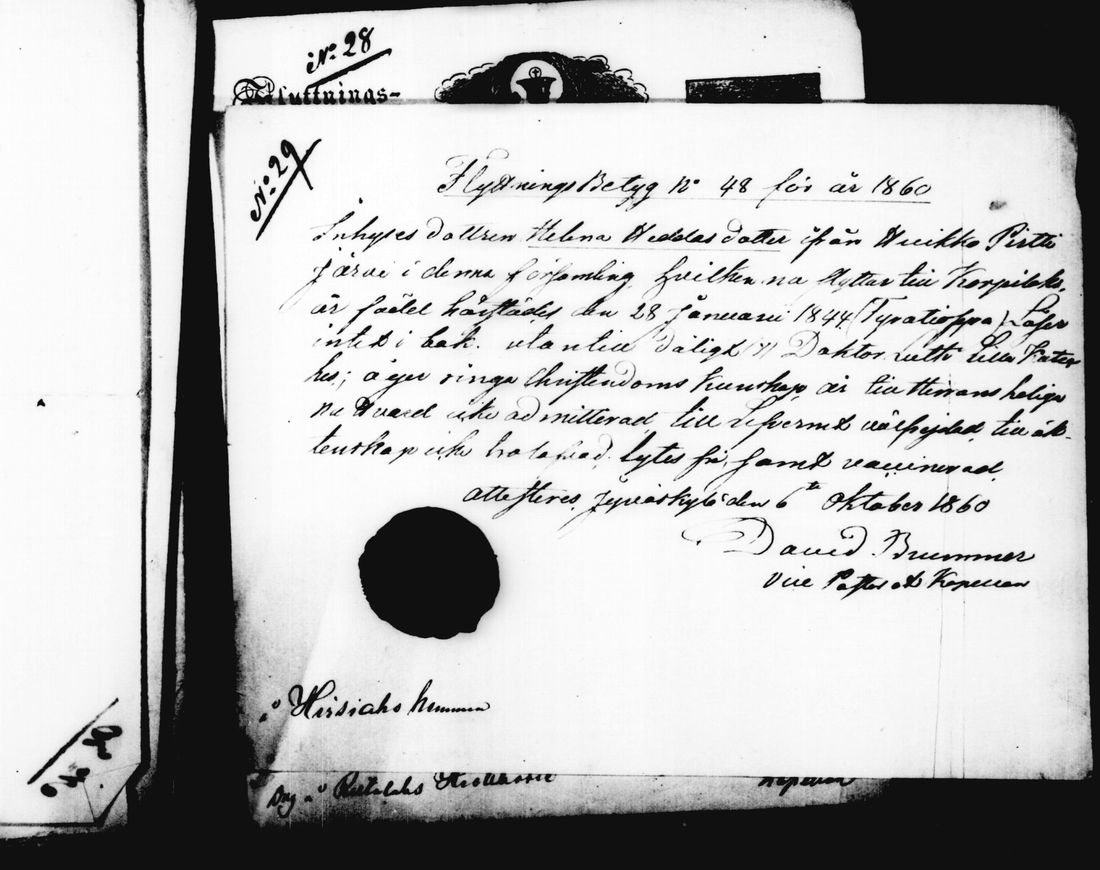 No 28
Flyttnings-
No 29
Flyttnings Betyg No 48 för år 1860
Inhyses dottren Helena Heddas dotter ifrån Huikko Pirtti
järvi i denna församling, hvilken nu flyttar till Korpilaks,
är född härstädes den 28 Januari 1844, Läser
intet i bok. utantill dåligt Doktor Luth: Lilla Kate
hes; äger ringa Christendoms kunskap, är till Herrans heliga
Nattvard icke admitterad, till lefvernet välfrejdad, till äk-
tenskap icke trolofvad, lytes fri, samt vaccinerad,
attesteres, Jyväskylä den 6te Oktober 1860
David Brummer
Vice Pastor Kapellan
Hirsiaho hemman
Kapellan